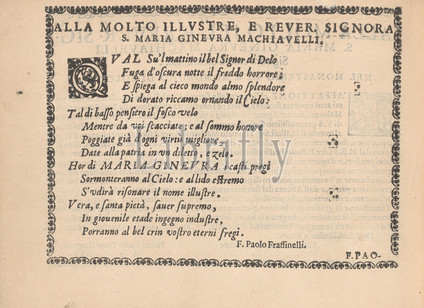 ALLA MOLTO ILLVSTRE, E REVER. SIGNORA
S. MARIA GINEVRA MACHIAVELLI,
QVAL Su'l mattino il bel Signor di Delo
Fuga d'oscura notte il freddo horrore;
E spiega al cieco mondo almo splendore
Di dorato riccamo ornando il Cielo:
Tal di basso pensiero il fosco velo
Mentre da voi scacciate; e al sommo honor
Poggiate già d'ogni virtù migliore
Date alla patria in vn diletto, e zelo.
Hor di MARIA GINEVRA i casti pregi
Sormonteranno al Cielo: e al lido estremo
S'vdirà risonare il nome illustre.
Vera, e santa pietà, sauer supremo,
In giouenile etade ingegno industre,
Porranno al bel crin vostro eterni fregi.
F. Paolo Fraffinelli.
F. PAO-
Librifly